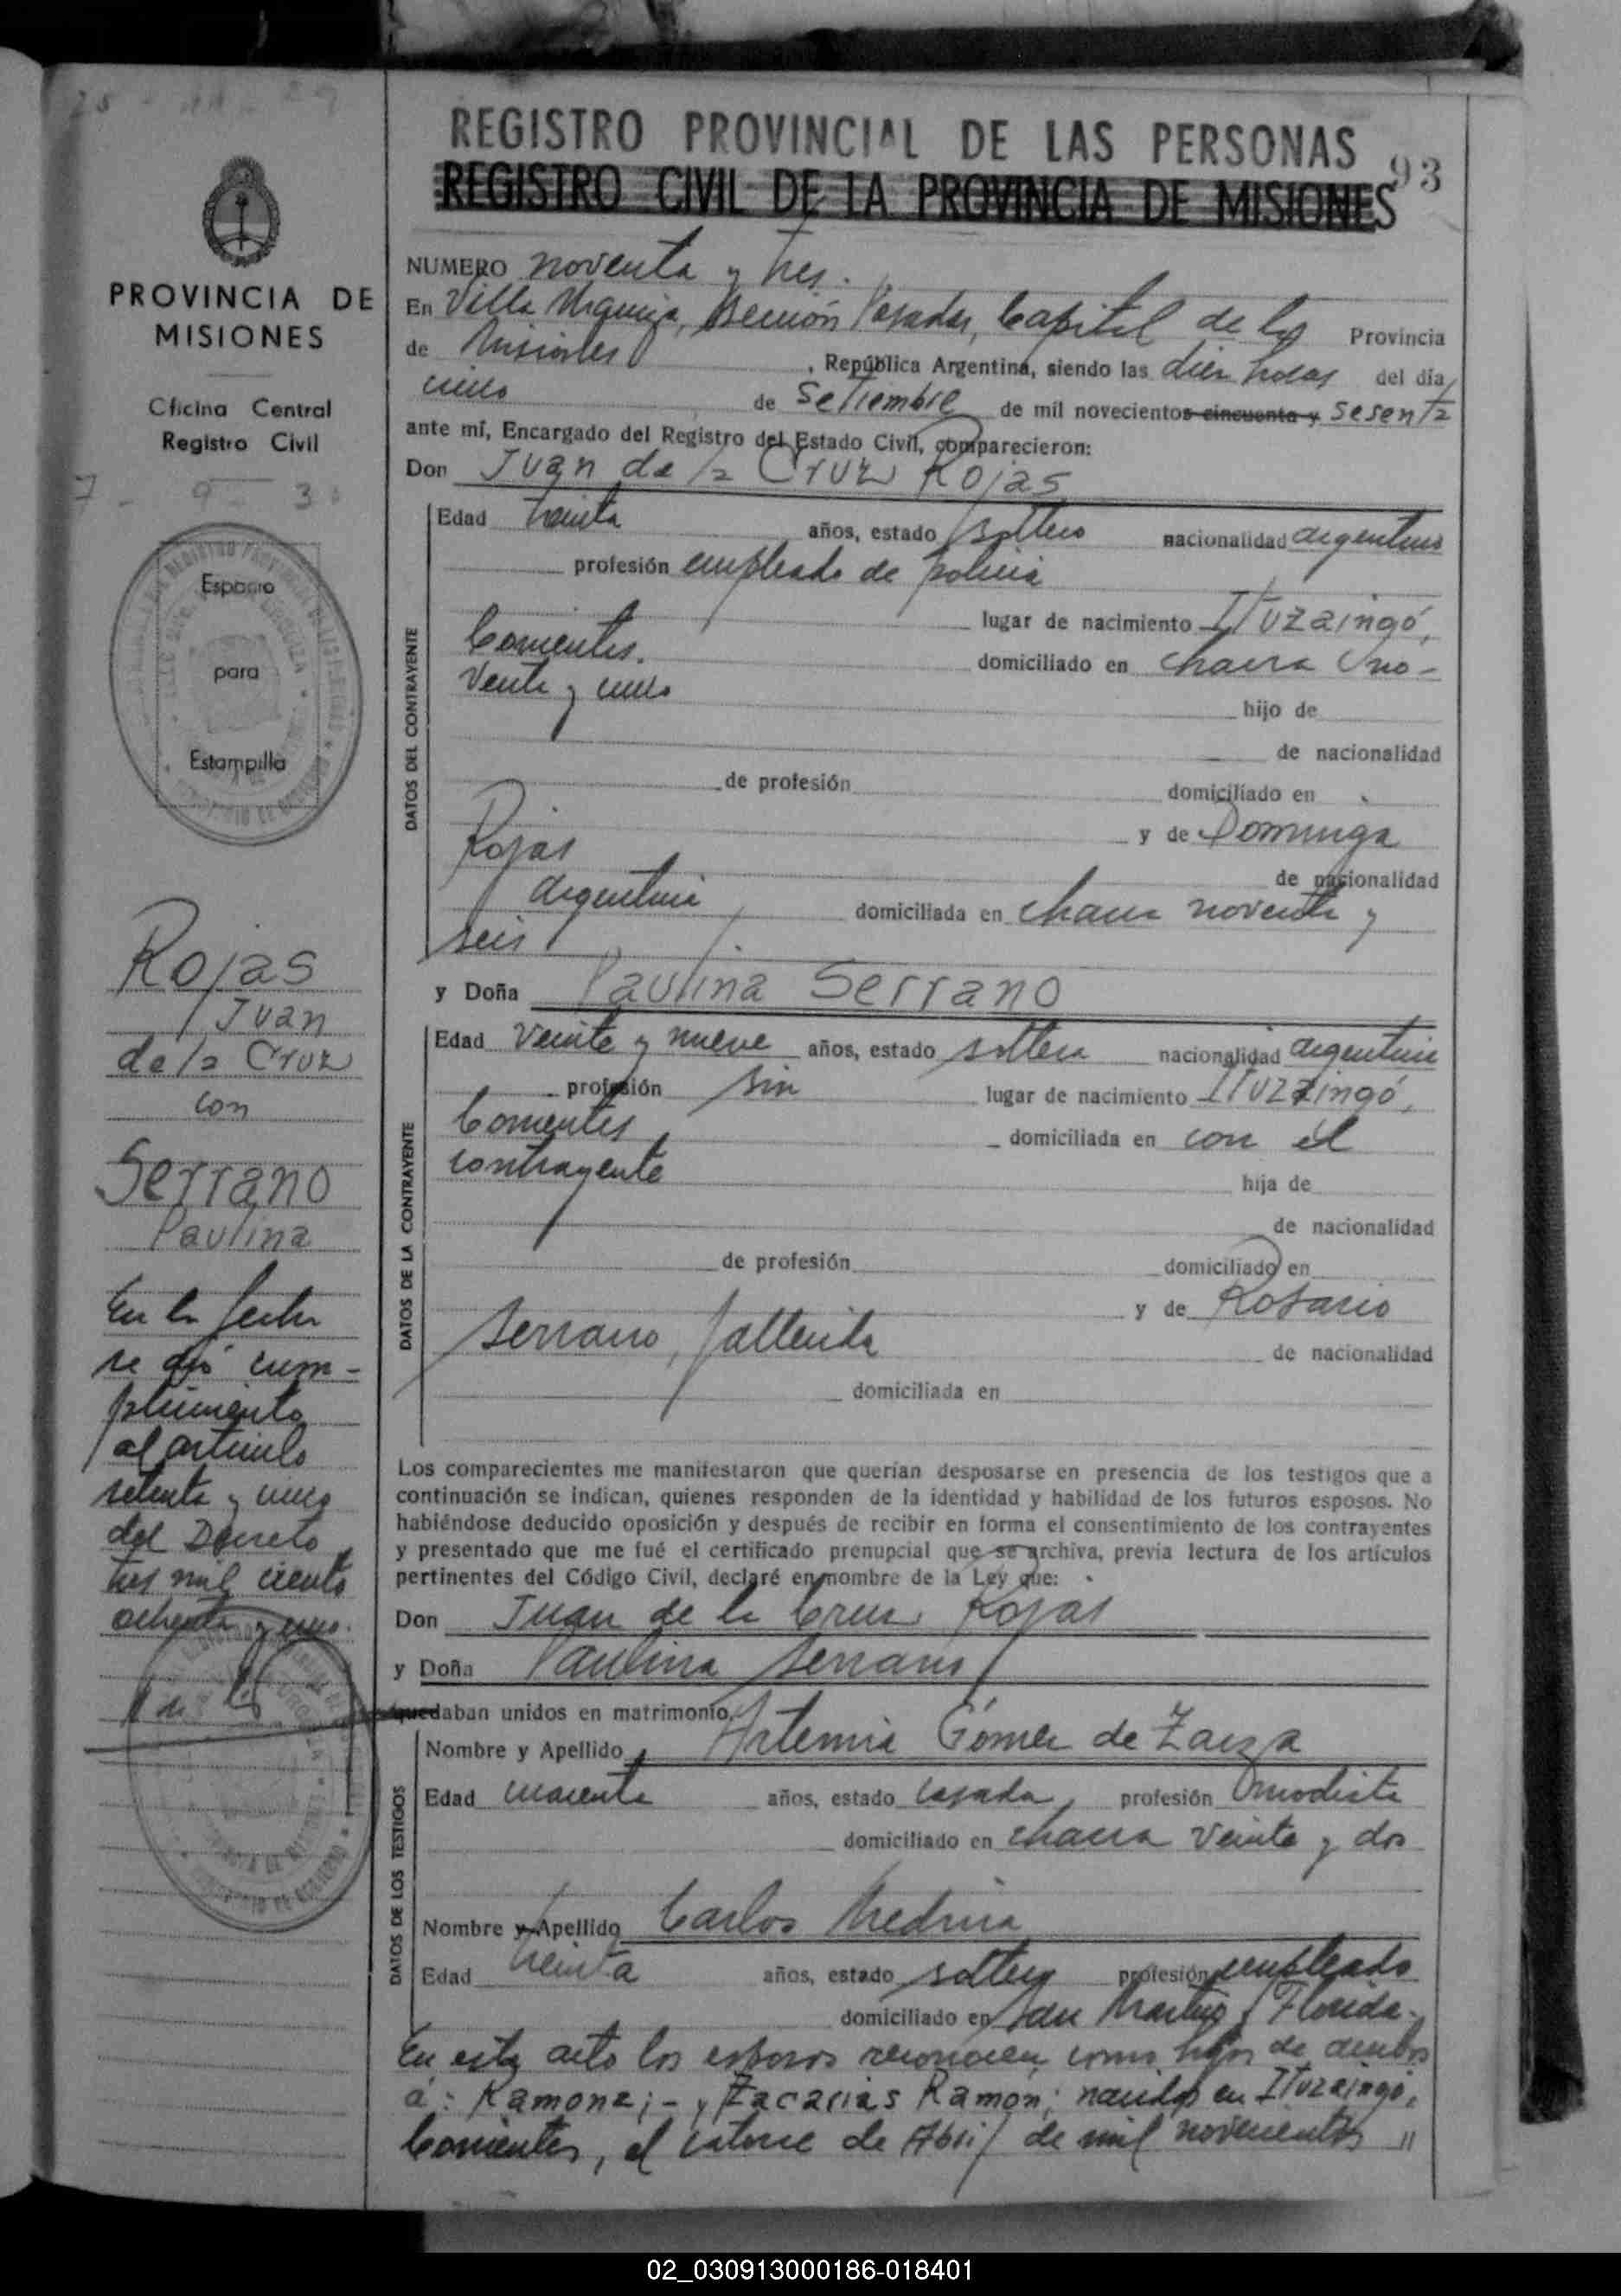 25 - 11 - 29
PROVINCIA DE
MISIONES
Oficina Central
Registro Civil
7 - 9 - 3
Espacio
para
Estampilla
Rojas
Juan
de la Cruz
con
Serrano
Paulina
En la fecha
se dió cum-
plimiento
al artículo
setenta y cinco
del Decreto
tres mil ciento
ochenta y
REGISTRO PROVINCIAL DE LAS PERSONAS
93
REGISTRO CIVIL DE LA PROVINCIA DE MISIONES
NUMERO noventa y tres.
En Villa Urquiza, Sección Posadas, Capital de la Provincia
de Misiones, República Argentina, siendo las diez horas del día
cinco de Setiembre de mil novecientos cincuenta y sesenta
ante mí, Encargado del Registro del Estado Civil, comparecieron:
Don Juan de la Cruz Rojas
DATOS DEL CONTRAYENTE
Edad treinta años, estado soltero nacionalidad argentino
profesión empleado de policia
lugar de nacimiento Ituzaingó,
Corrientes. domiciliado en chacra
veinte y cinco hijo de
de nacionalidad
de profesión domiciliado en
y de Dominga
Rojas de nacionalidad
argentina domiciliada en chacra noventa y
seis
y Doña Paulina Serrano
DATOS DE LA CONTRAYENTE
Edad veinte y nueve años, estado soltera nacionalidad argentina
profesión sin lugar de nacimiento Ituzaingó,
Corrientes domiciliada en con el
contrayente hija de
de nacionalidad
de profesión domiciliado en
y de Rosario
Serrano, fallecida de nacionalidad
domiciliada en
Los comparecientes me manifestaron que querían desposarse en presencia de los testigos que a
continuación se indican, quienes responden de la identidad y habilidad de los futuros esposos. No
habiéndose deducido oposición y después de recibir en forma el consentimiento de los contrayentes
y presentado que me fué el certificado prenupcial que se archiva, previa lectura de los artículos
pertinentes del Código Civil, declaré en nombre de la Ley que:
Don Juan de la Cruz Rojas
y Doña Paulina Serrano
quedaban unidos en matrimonio.
DATOS DE LOS TESTIGOS
Nombre y Apellido Artemia Gómez de
Edad cuarenta años, estado casada, profesión modista
domiciliado en chacra veinte y dos
Nombre y Apellido Carlos Medina
Edad treinta años, estado soltero profesión empleado
domiciliado en San Martin y Florida.
En este acto los esposos reconocen como hijos de ambos
á: Ramona; - y Zacarias Ramón; nacidos en Ituzaingó,
Corrientes, el catorce de Abril de mil novecientos "
02_030913000186-018401